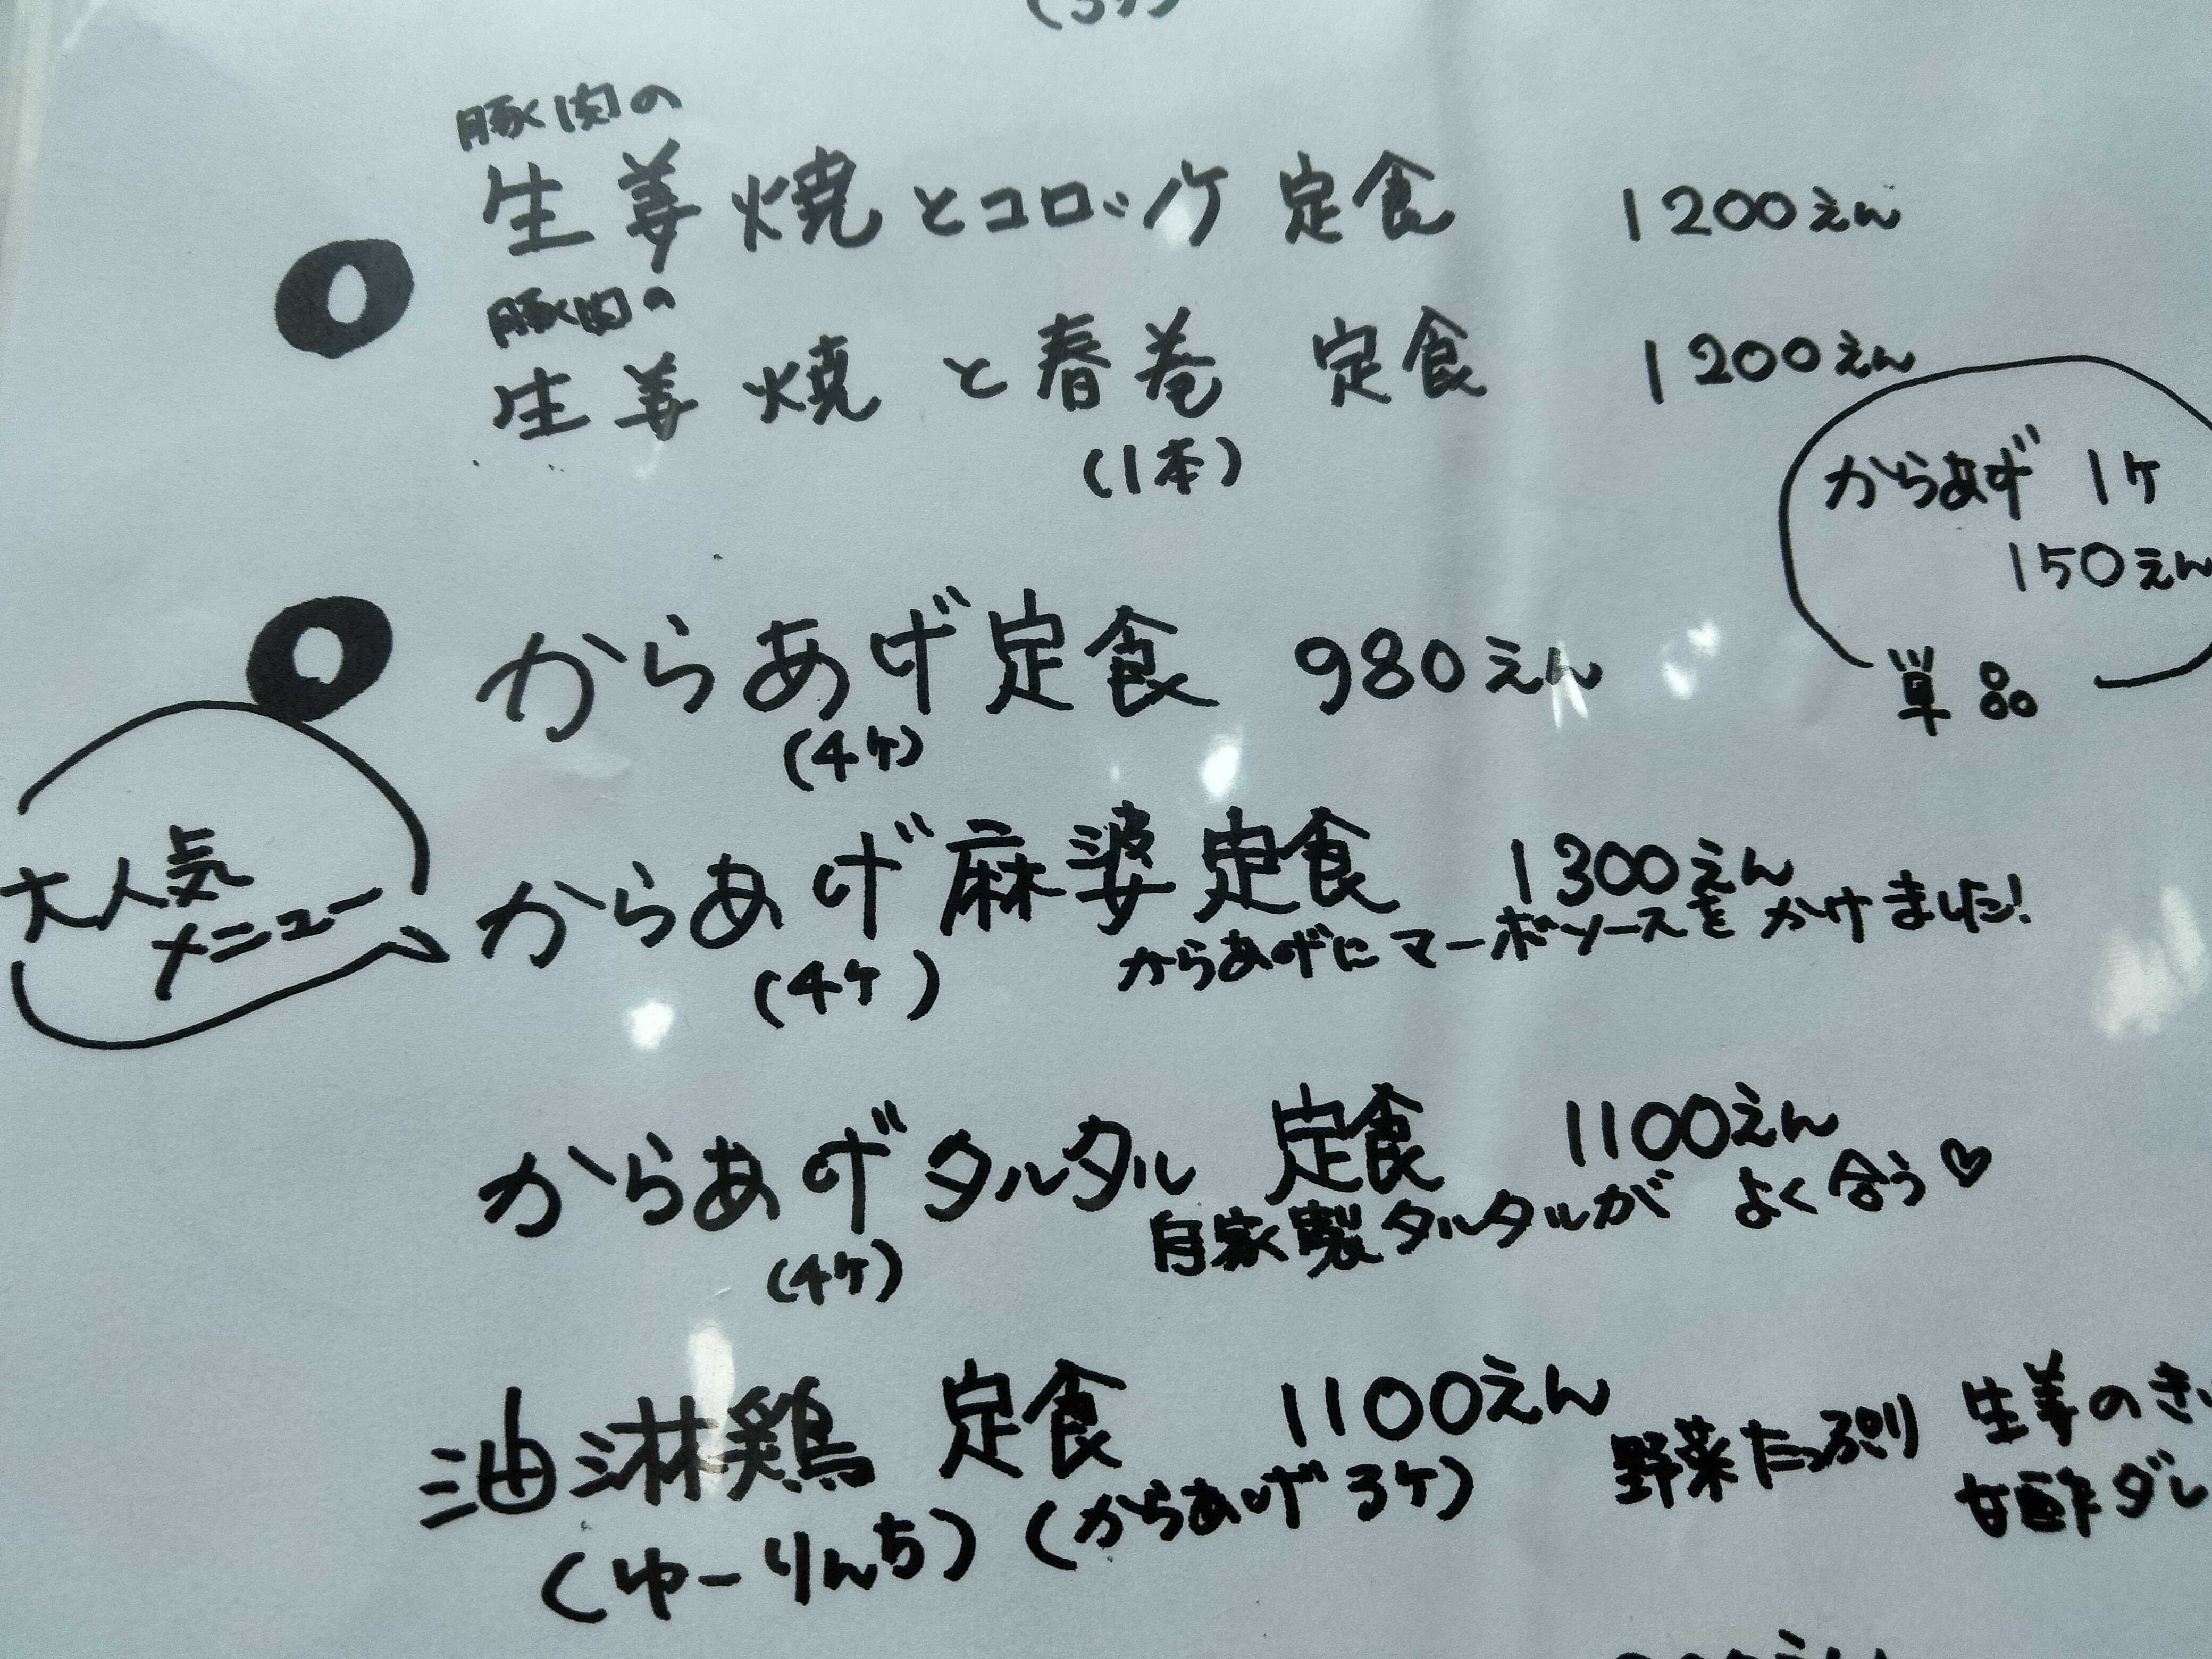 豚肉の
生姜焼とコロッケ定食 1200えん
豚肉の
生姜焼と春巻定食 1200えん
(1本)
からあげ 1ケ
150えん
単品
からあげ定食 980えん
(4ケ)
大人気
メニュー
からあげ麻婆定食 1300えん
(4ケ) からあげにマーボソースをかけました!
からあげタルタル定食 1100えん
(4ケ) 自家製タルタルがよく合う♡
油淋鶏定食 1100えん
(ゆーりんち) (からあげ3ケ) 野菜たっぷり 生姜のき
甘酢ダレ